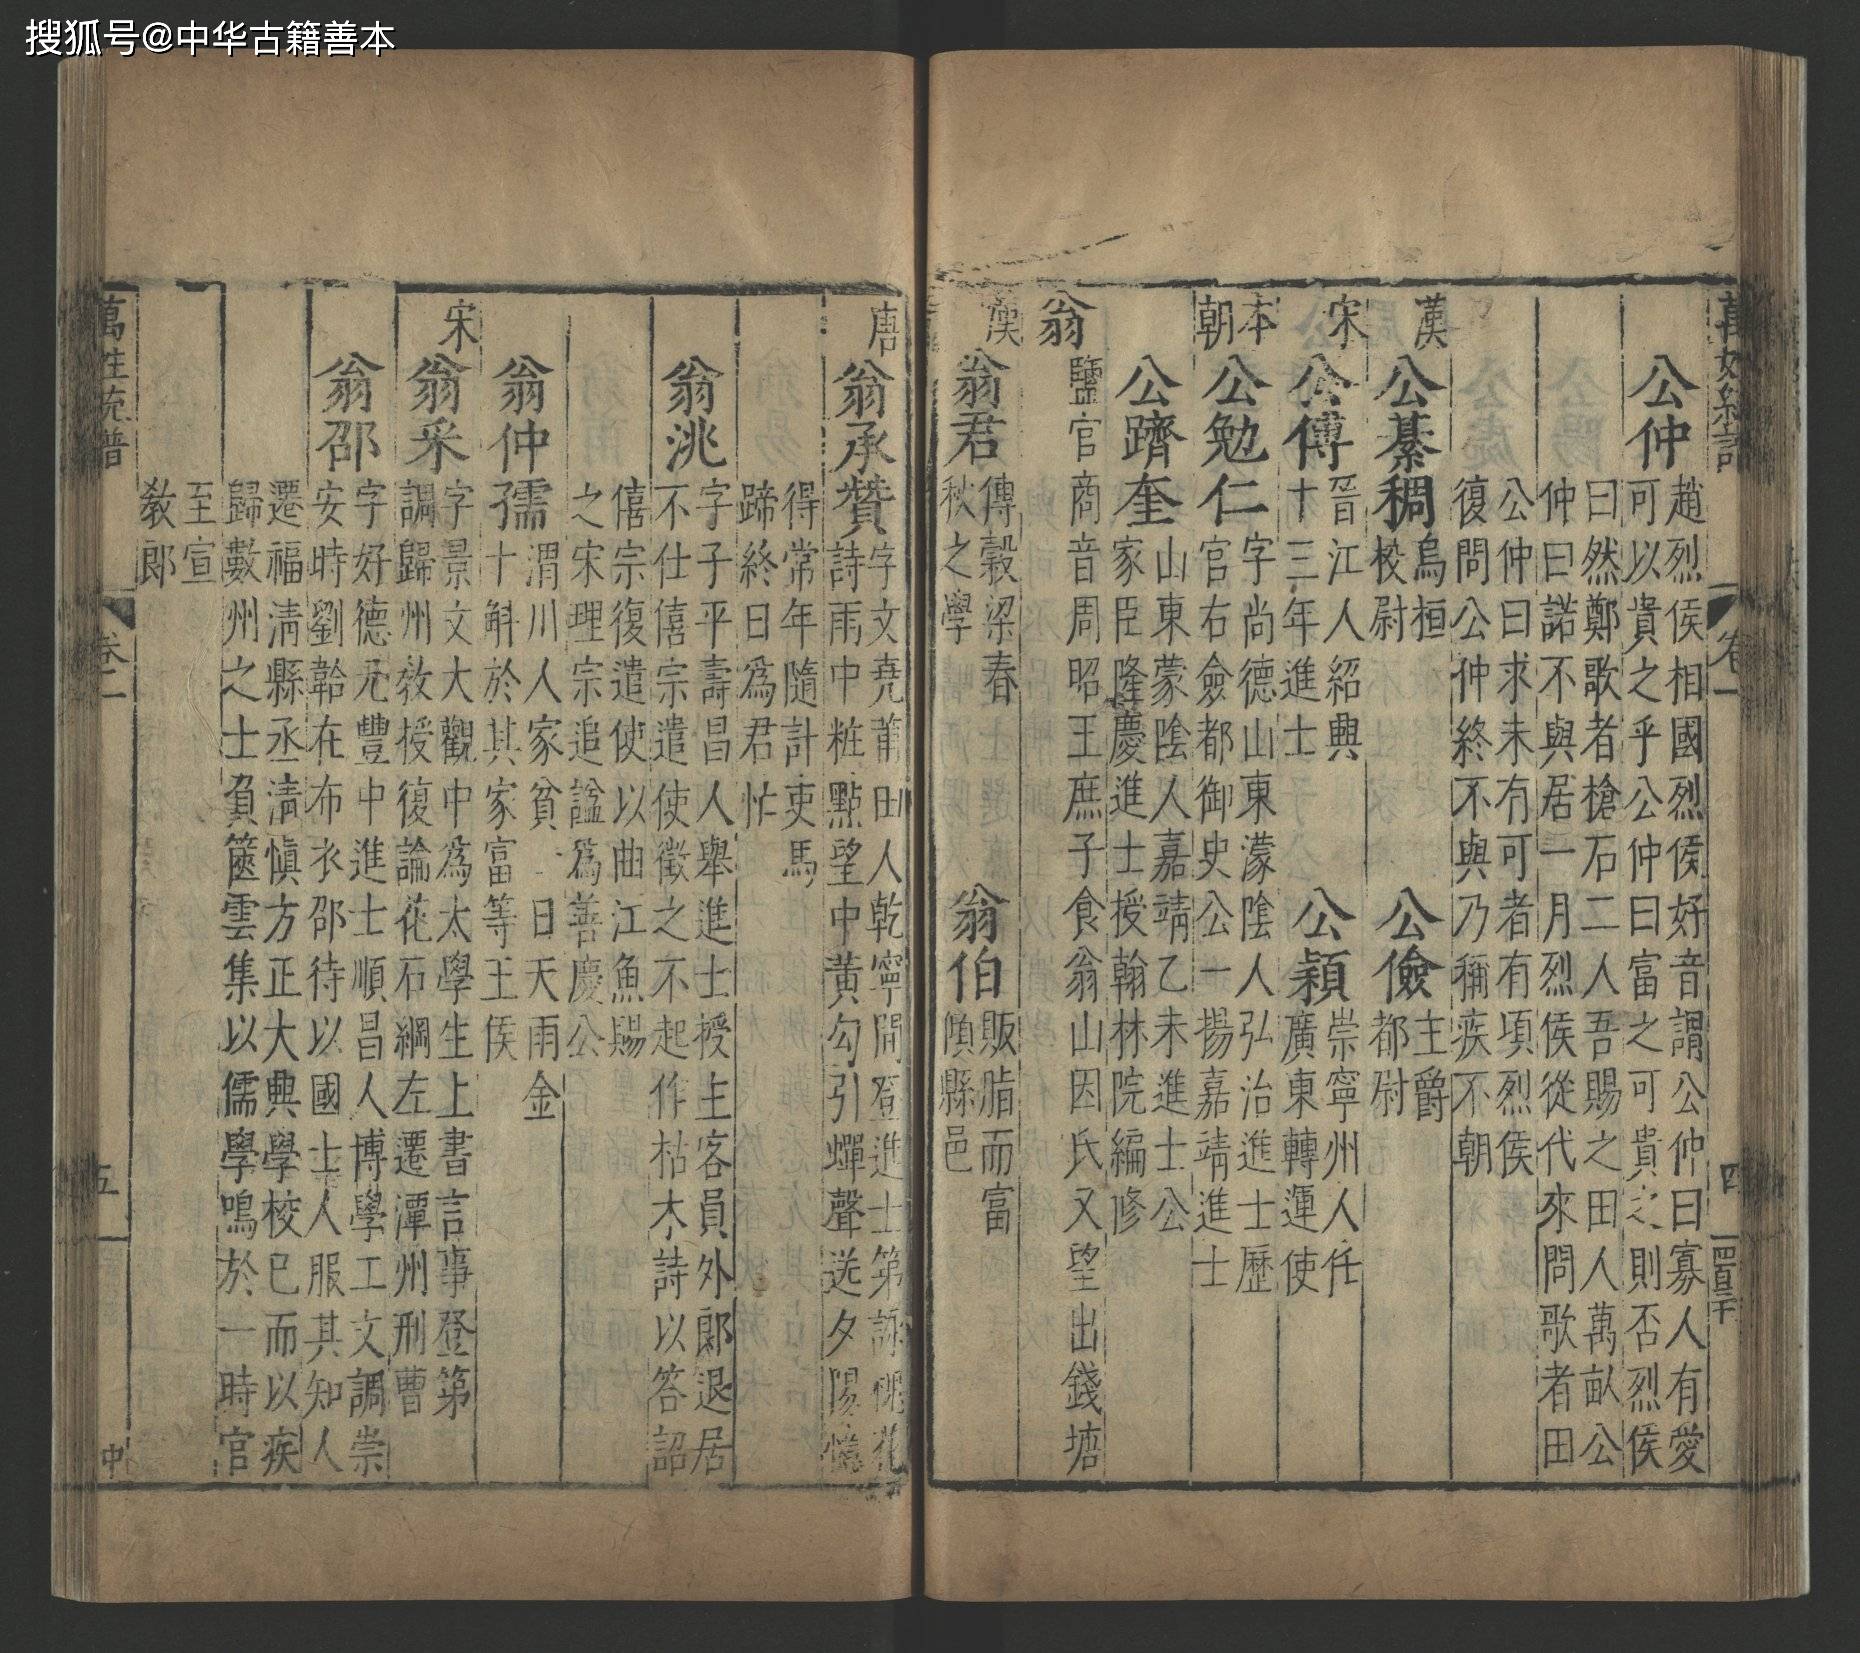 搜狐号@中华古籍善本
公仲
趙烈侯相國烈侯好音謂公仲曰寡人有愛
可以貴之乎公仲曰富之可貴之則否烈侯
曰然鄭歌者槍石二人吾賜之田人萬畝公
仲曰諾不與居一月烈侯從代來問歌者田
公仲曰求未有可者有頃烈侯
復問公仲終不與乃稱疾不朝
漢
公綦稠
烏桓
校尉
公儉
主爵
都尉
宋
公傅
晉江人紹興
十三年進士
公穎
崇寧州人任
廣東轉運使
本朝
公勉仁
字尚德山東濛陰人弘治進士歷
官右僉都御史公一揚嘉靖進士
公躋奎
山東蒙陰人嘉靖乙未進士公
家臣隆慶進士授翰林院編修
翁
鹽官商音周昭王庶子食翁山因氏又望出錢塘
漢
翁君
傳穀梁春
秋之學
翁伯
販脂而富
傾縣邑
萬姓統譜
四
唐
翁承贊
字文堯莆田人乾寧間登進士第詠桃花
詩雨中粧點望中黃勾引蟬聲送夕陽憶
得常年隨計吏馬
蹄終日為君忙
翁洮
字子平壽昌人舉進士授主客員外郎退居
不仕僖宗遣使徵之不起作枯木詩以答詔
僖宗復遣使以曲江魚賜
之宋理宗追諡為善慶公
翁仲孺
渭川人家貧一日天雨金
十斛於其家富等王侯
宋
翁采
字景文大觀中為太學生上書言事登第
調歸州教授復論花石綱左遷潭州刑曹
翁邵
字好德元豐中進士順昌人博學工文調崇
安時劉韐在布衣邵待以國士人服其知人
遷福清縣丞清慎方正大興學校已而以疾
歸數州之士負篋雲集以儒學鳴於一時官
至宣
教郎
萬姓統譜
卷一
五
中